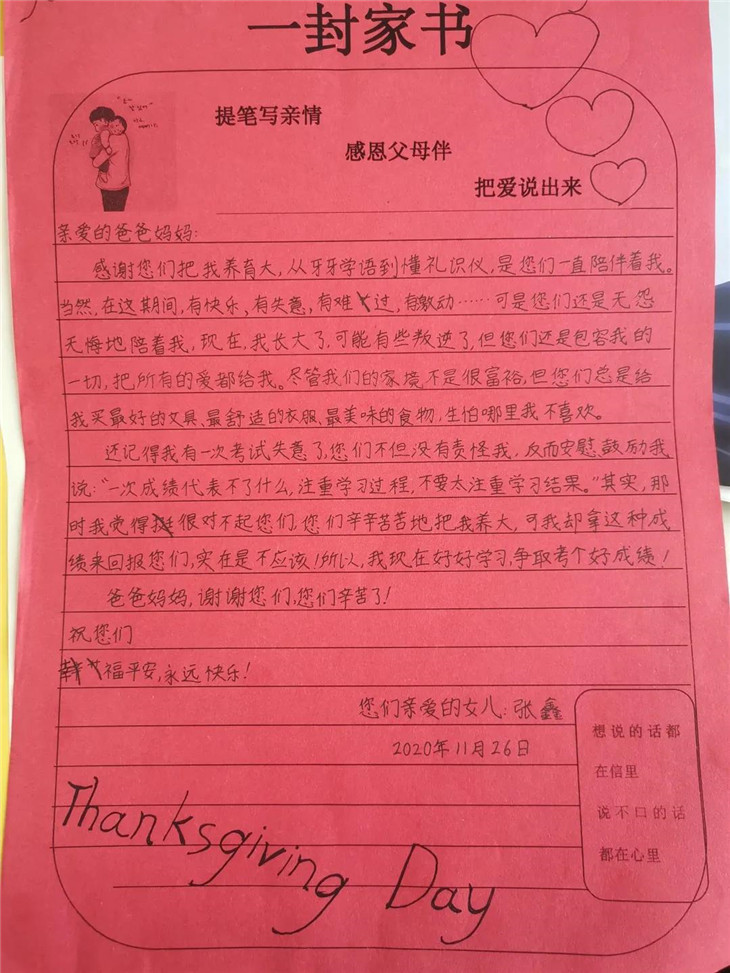 一封家书
提笔写亲情
感恩父母伴
把爱说出来
亲爱的爸爸妈妈:
感谢您们把我养育大,从牙牙学语到懂礼识仪,是您们一直陪伴着我。
当然,在这期间,有快乐,有失意,有难过,有激动……可是您们还是无怨
无悔地陪着我,现在,我长大了,可能有些叛逆了,但您们还是包容我的
一切,把所有的爱都给我。尽管我们的家境不是很富裕,但您们总是给
我买最好的文具、最舒适的衣服、最美味的食物,生怕哪里我不喜欢。
还记得我有一次考试失意了,您们不但没有责怪我,反而安慰、鼓励我
说:“一次成绩代表不了什么,注重学习过程,不要太注重学习结果。”其实,那
时我觉得很对不起您们,您们辛辛苦苦地把我养大,可我却拿这种成
绩来回报您们,实在是不应该!所以,我现在好好学习,争取考个好成绩!
爸爸妈妈,谢谢您们,您们辛苦了!
祝您们
福平安,永远快乐!
您们亲爱的女儿:张鑫
2020年11月26日
想说的话都
在信里
说不口的话
都在心里
Thanksgiving Day